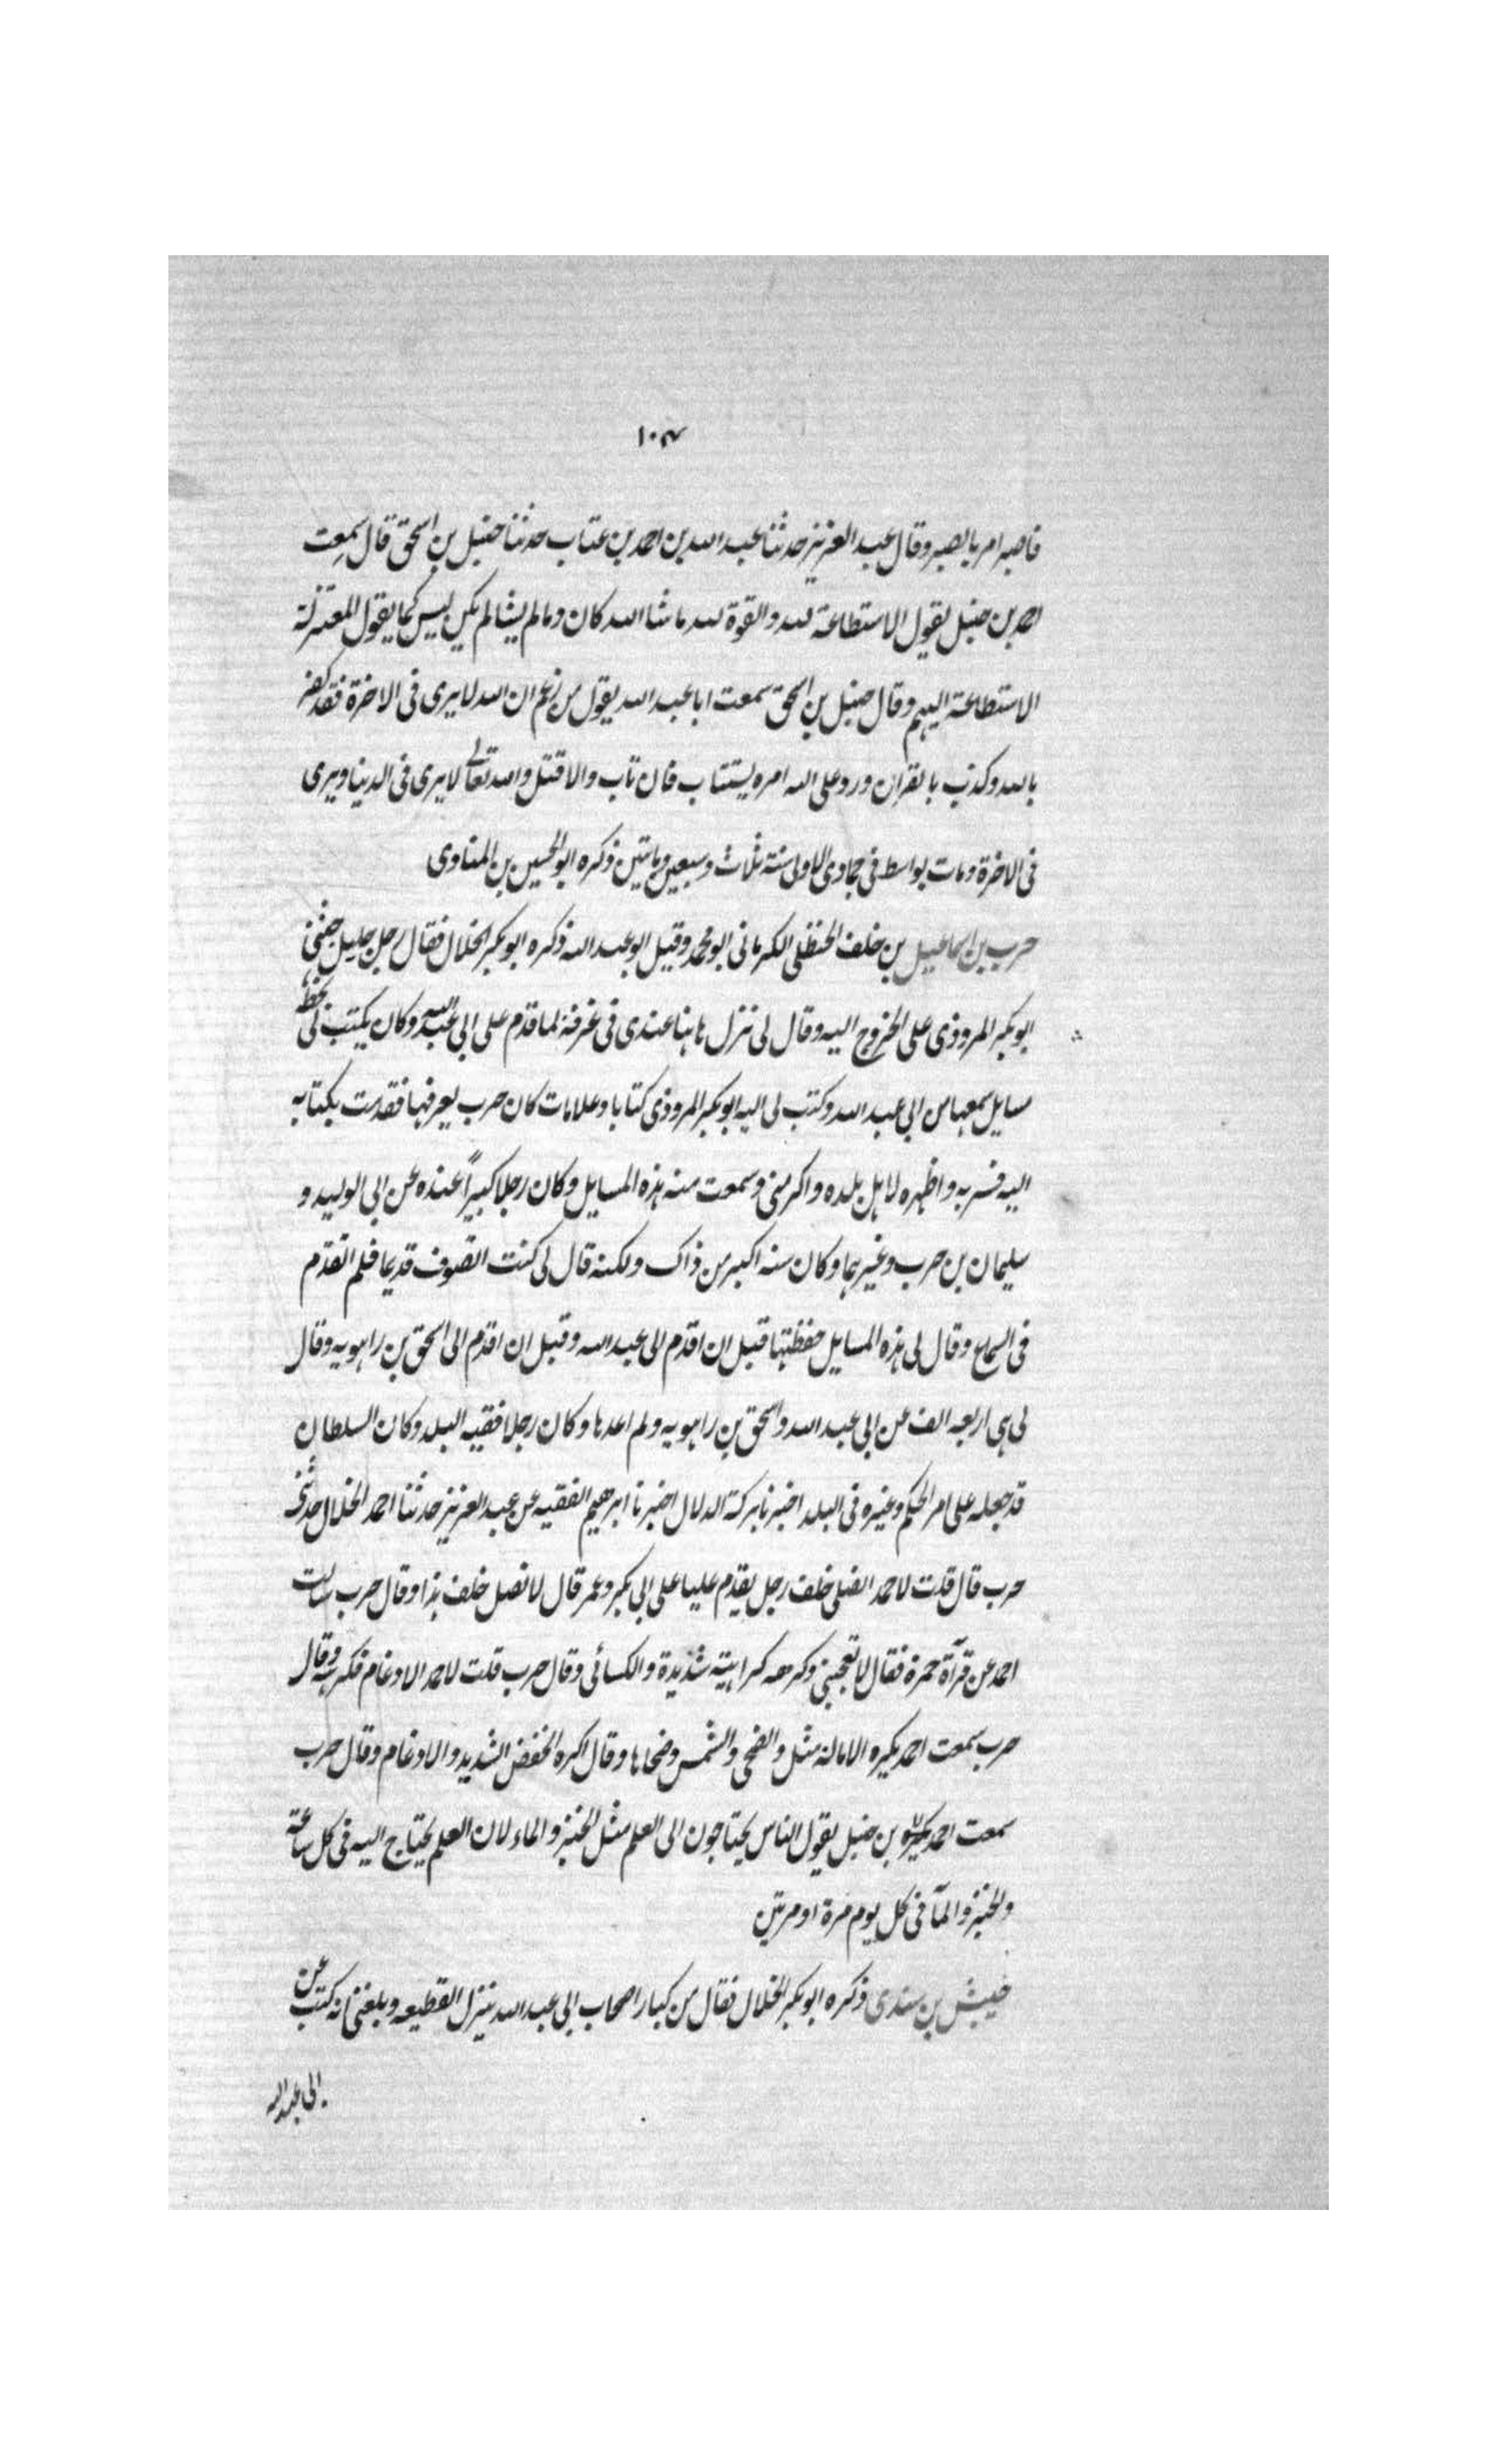 ١٠٣
فاصبر امر بالصبر وقال عبد العزيز حدثنا عبد الله بن احمد بن عتاب حدثنا حنبل بن اسحق قال سمعت
احمد بن حنبل يقول الاستطاعة لله والقوة لله ما شا الله كان وما لم يشا لم يكن ليس كما يقول المعتزلة
الاستطاعة اليهم وقال حنبل بن اسحق سمعت ابا عبد الله يقول من زعم ان الله لا يرى فى الاخرة فقد كفر
بالله وكذب بالقران ورد على الله امره يستتاب فان تاب والا قتل والله تعالى لا يرى فى الدنيا ويرى
فى الاخرة ومات بواسط فى جمادى الاولى سنة ثلاث وسبعين وماتين ذكره ابو الحسين بن المناوى
حرب بن اسماعيل بن خلف الحنظلى الكرمانى ابو محمد وقيل ابو عبد الله ذكره ابو بكر الخلال فقال رجل جليل حثنى
ابو بكر المروذى على الخروج اليه وقال لى نزل هاهنا عندى فى غرفة لما قدم على ابى عبد الله وكان يكتب لى بخطه
مسايل سمعها من ابى عبد الله وكتب لى اليه ابو بكر المروذى كتابا وعلامات كان حرب يعرفها فقدمت بكتابه
اليه فسر به واظهره لاهل بلده واكرمنى وسمعت منه هذه المسايل وكان رجلا كبيراً عنده عن ابى الوليد و
سليمان بن حرب وغيرهما وكان سنه اكبر من ذاك ولكنه قال لى كنت اتصوف قديما فلم اتقدم
فى السماع وقال لى هذه المسايل حفظتها قبل ان اقدم الى عبد الله وقبل ان اقدم الى اسحق بن راهويه وقال
لى هى اربعه الف عن ابى عبد الله واسحق بن راهويه ولم اعدها وكان رجلا فقيه البلد وكان السلطان
قد جعله على امر الحكم وغيره فى البلد اخبرنا بركة الدلال اخبرنا ابرهيم الفقيه عن عبد العزيز حدثنا احمد الخلال حدثنى
حرب قال قلت لاحمد انصلى خلف رجل يقدم عليا على ابى بكر وعمر قال لا تصل خلف هذا وقال حرب سالت
احمد عن قرآة حمزة فقال لا تعجبنى وكرهه كراهيته شديدة والكسائى وقال حرب قلت لاحمد الادغام فكرهه وقال
حرب سمعت احمد يكره الامالة مثل والضحى والشمس وضحاها وقال اكره الخفض الشديد والادغام وقال حرب
سمعت احمد بن حنبل يقول الناس يحتاجون الى العلم مثل الخبز والماء لان العلم يحتاج اليه فى كل ساعة
والخبز والمآ فى كل يوم مرة او مرتين
حبيش بن سندى ذكره ابو بكر الخلال فقال من كبار اصحاب ابى عبد الله ينزل القطيعه وبلغنى انه كتب عن
ابى عبد الله